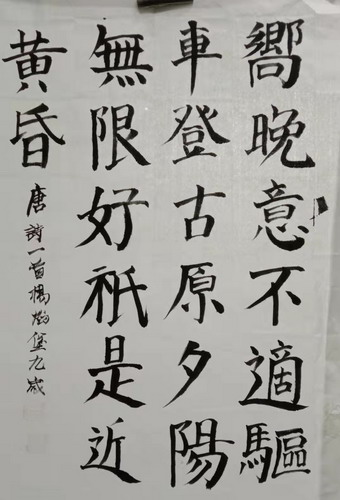 嚮晚意不適驅
車登古原夕陽
無限好祇是近
黃昏
唐詩一首楊
九歲